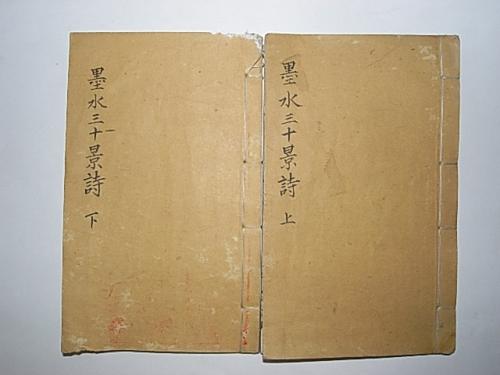 墨水三十景詩 上
墨水三十景詩 下